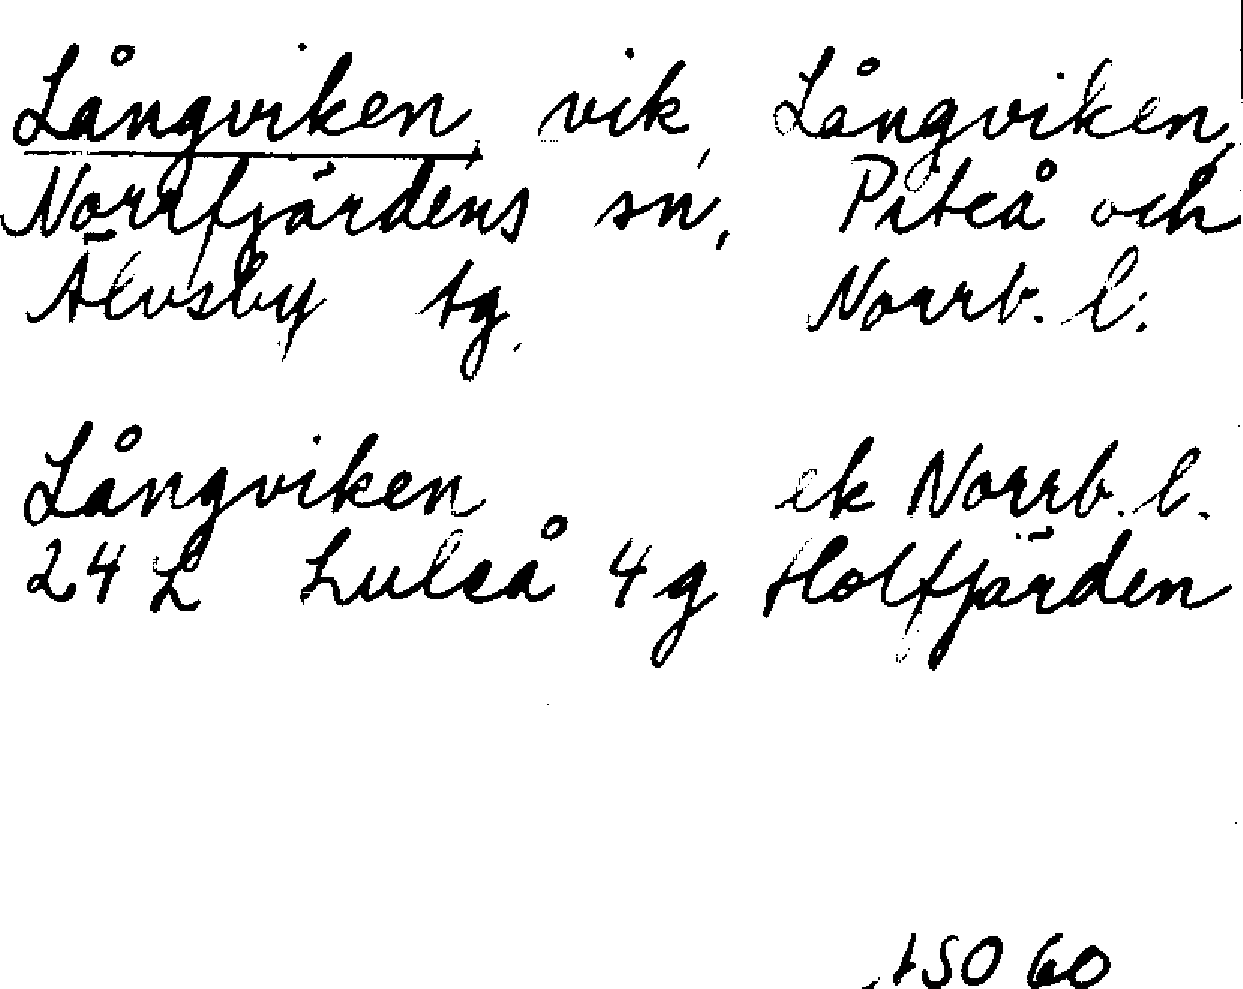 Långviken, vik, Långviken,
Norrfjärdens sn, Piteå och
Älvsby tg, Norrb. l.
Långviken ek Norrb. l.
24 L Luleå 4 g Holfjärden
ISO 60